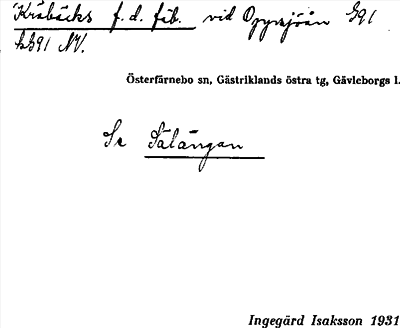 Kråbäcks f.d. fäb. vid Öjjersjöån G91
bG91 NV.
Österfärnebo sn, Gästriklands östra tg, Gävleborgs l.
Se Sälängan
Ingegärd Isaksson 1931